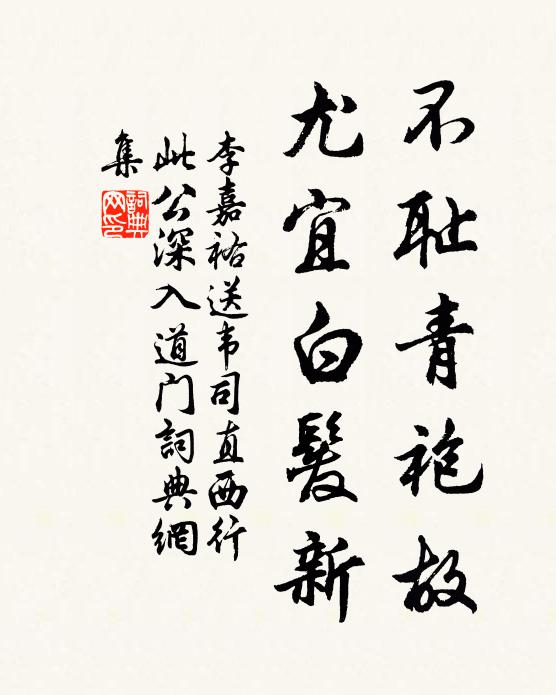 不耻青袍故
尤宜白髮新
李嘉祐送韦司直西行
此公深入道门詞典網
集
詞典
网印